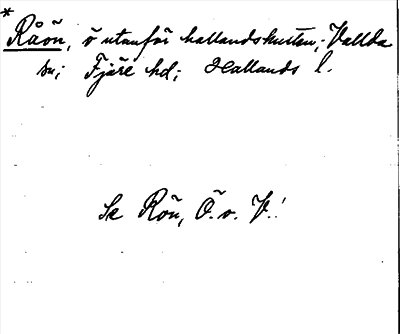 * Råön, ö utanför hallandskusten; Vallda
sn; Fjäre hd; Hallands l.
Se Rön, Ö. o. V.!